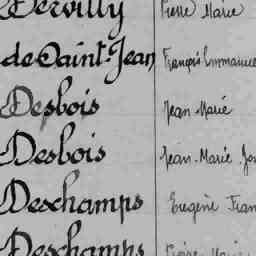 Dervilly Pierre Marie
de Saint-Jean François Emmanuel
Desbois Jean-Marie
Desbois Jean-Marie
Deschamps Eugène Fran
Deschamps Marie